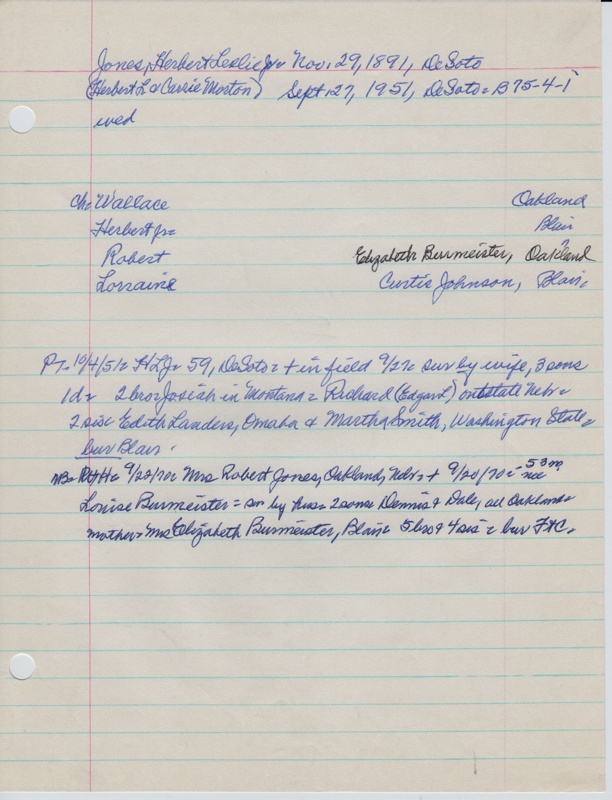 Jones, Herbert Leslie Jr= Nov. 29, 1891, DeSoto
(Herbert L & Carrie Morton) Sept 27, 1951, DeSoto= B75-4-1
wed
Ch= Wallace Oakland
Herbert Jr= Blair
Robert Elizabeth Burmeister, Oakland
Lorraine Curtis Johnson, Blair=
PT= 10/4/51= HLJ= 59, DeSoto= + in field 9/27= sur by wife, 3 sons
1d= 2 bro= Josiah in Montana= Richard (Edgar L) outstate Nebr=
2 sis= Edith Landers, Omaha & Martha Smith, Washington State=
bur Blair.
9/22/70= Mrs Robert Jones, Oakland, Nebr= + 9/20/70= 53 nee
Louise Burmeister= sur by hus= 2 sons= Dennis & Dale, all Oakland=
mother= Mrs Elizabeth Burmeister, Blair= 5 bro & 4 sis= bur